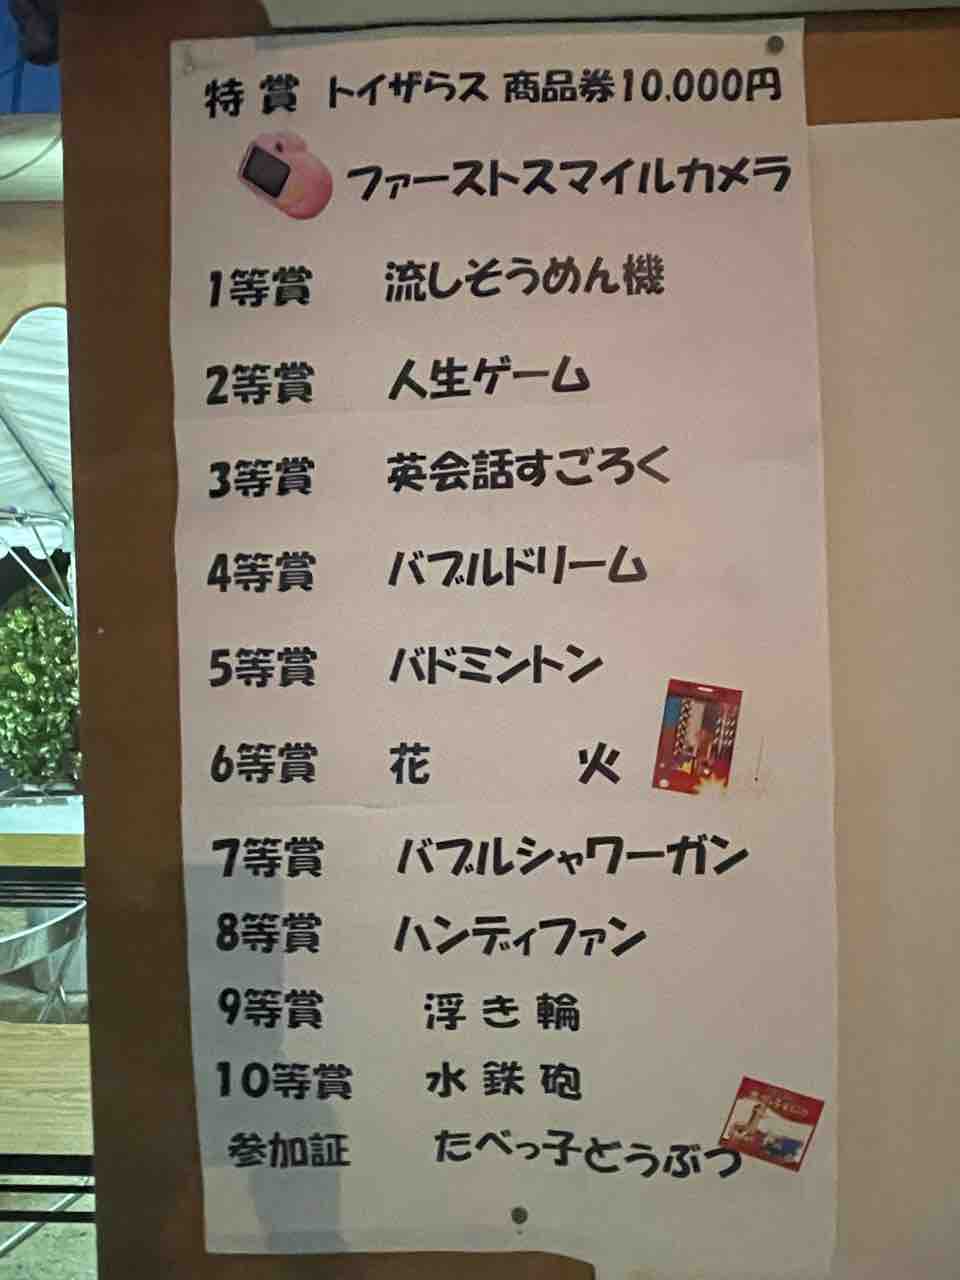 特賞 トイザらス 商品券10.000円
ファーストスマイルカメラ
1等賞 流しそうめん機
2等賞 人生ゲーム
3等賞 英会話すごろく
4等賞 バブルドリーム
5等賞 バドミントン
6等賞 花 火
7等賞 バブルシャワーガン
8等賞 ハンディファン
9等賞 浮き輪
10等賞 水鉄砲
参加証 たべっ子どうぶつ